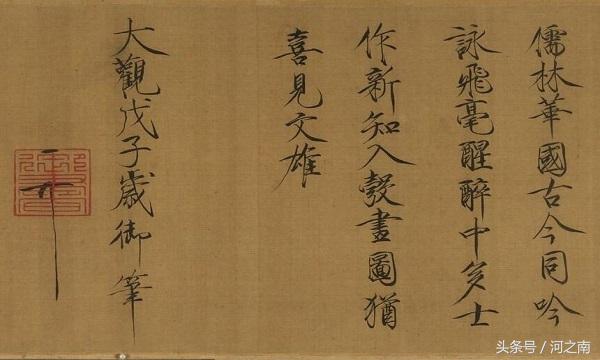 儒林華國古今同吟
詠飛毫醒醉中多士
作新知入彀畫圖猶
喜見文雄
大觀戊子歲御筆
头条号 / 河之南